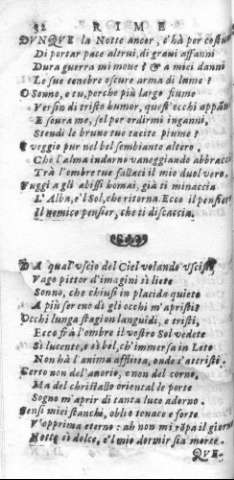 32 RIME
DVNQVE la Notte ancor, c'hà per costume
Di portar pace altrui, di graui affanni
Dura guerra mi moue? & a miei danni
Le sue tenebre oscure arma di lume?
O Sonno, e tu, perche più largo fiume
Versin di tristo humor, quest'occhi appanni
E soura me, sol per ordirmi inganni,
Stendi le brune tue tacite piume?
Veggio pur nel bel sembiante altero,
Che l'alma indarno vaneggiando abbraccia
Trà l'ombre tue fallaci il mio duol vero.
Fuggi a gli abissi homai, già ti minaccia
L'Alba, e'l Sol, che ritorna. Ecco il pensier
Il nemico pensier, che ti discaccia.
DA qual vscio del Ciel volando vscisti
Vago pittor d'imagini sì liete
Sonno, che chiusi in placida quiete
A più sereno dì gli occhi m'apristi?
Occhi lunga stagion languidi, e tristi,
Ecco frà l'ombre il vostro Sol vedete
Sì lucente, e sì bel, ch'immersa in Lete
Non hà l'anima afflitta, onde s'attristi.
Certo non del'auorio, e non del corno,
Ma del christallo oriental le porte
Sogno m'aprir di tanta luce adorno.
Sensi miei stanchi, oblio tenace e forte
V'opprima eterno: ah non mi rõpa il giorno
Notte sì dolce, e'l mio dormir sia morte.
QVE-